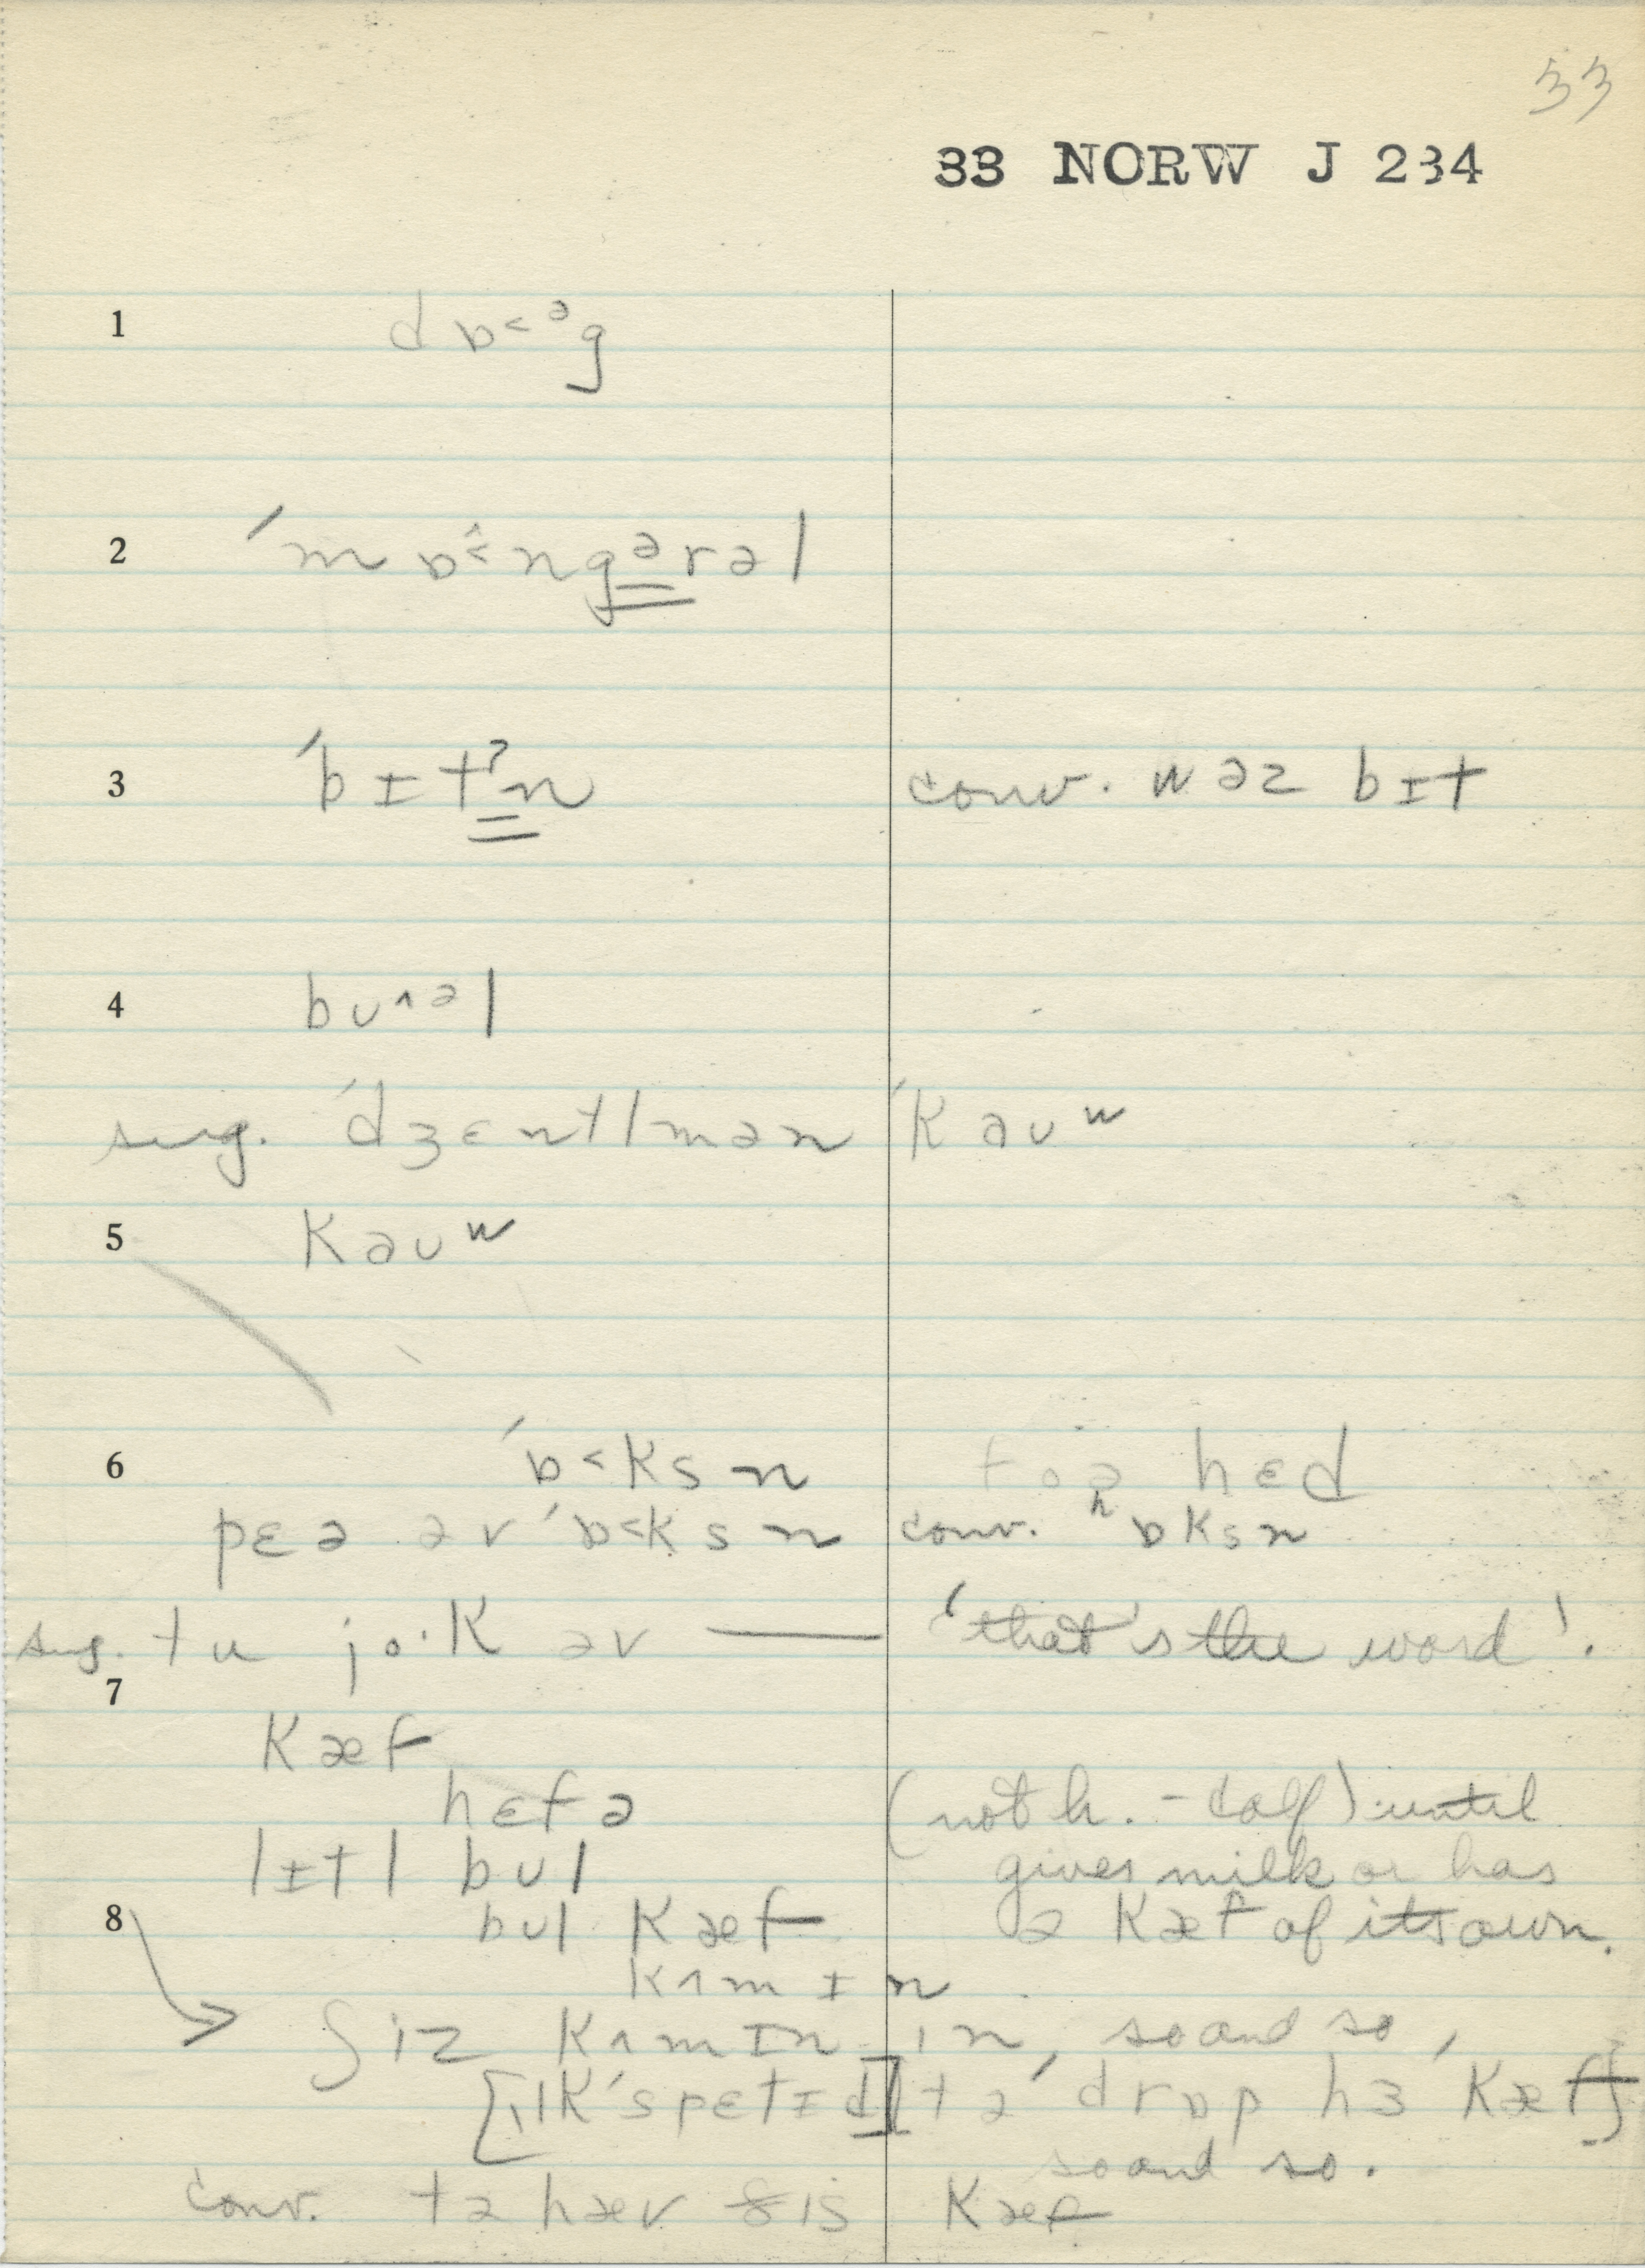 33
33 NORW J 234
1 dɒ˂ᵊg
2 ´mɒ˂̂ngərəl
3 ´bɪtˀn conv. wəz bɪt
4 bᴜ^ᵊl
sug. ´dʒɛntlmən ´kaᴜʷ
5 kaᴜʷ
6 ´ɒ˂ksn hɛd
pɛə əv ´ɒ˂ksn conv. ʰɒksn
sug. tu jo·k əv — 'that's the word'.
7
kæf
hɛfə (not h.-calf) until
lɪtl bᴜl gives milk or has
8 bᴜl kæf a kæf of its own.
kʌmɪn
ʃiz kʌmɪn in, so and so,
[ɪk´spɛtɪd] tə ´drɒp hɜ ´kæf}
so and so.
conv. tə hæv ðis kæf